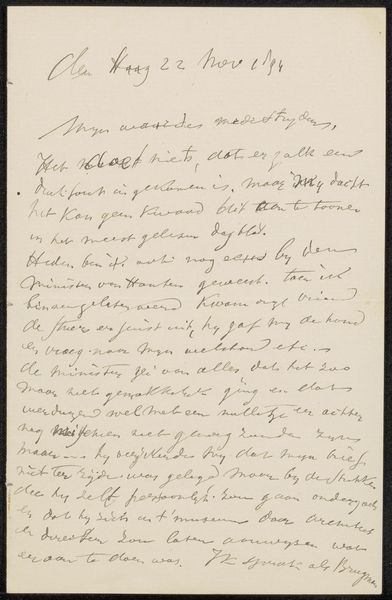 den Haag 22 Nov 1894
Mijn waardes medestrijders,
Het doet niets, dat er zulk een
drukfout in gekomen is, maar mij dacht
het kan geen kwaad blit aan te toonen
in het meest gelezen dagbl.
Heden ben ik ook nog eens bij den
minister van Houten geweest. toen ik
binnengelaten werd kwam onze vriend
de Stuers er juist uit, hij gaf mij de hand
en vroeg naar mijn welstand etc. -
de minister zei van alles dat het zoo
maar niet gemakkelijk ging en dat
met een nulletje er achter
nog misschien niet genoeg zouden zijn
maar hij dat mijn brief
niet ter zijde was gelegd maar bij de stukken
die hij zelf persoonlijk zou gaan onderzoek
en dat hij zich in 't museum door
en directeur zou laten aanwijzen wat
er aan te doen was. Ik sprak als Brugman